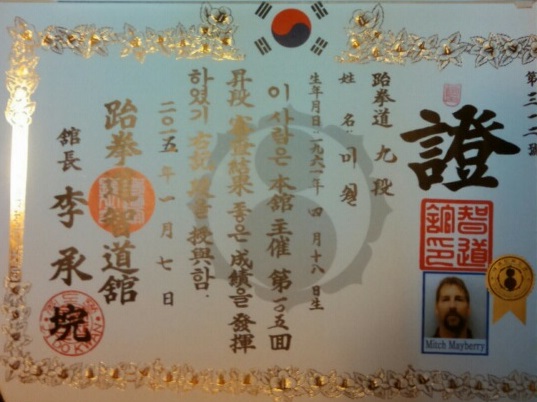 證
智道
舘印
Mitch Mayberry
跆拳道 九 段
姓 名: 미첼
生年月日一九六一年 四 月 十八 日生
이 사람은 本舘 主催 第一0五回
昇段 審査結果 좋은 成績을 發揮
하였기 右記 段을 授與함.
二0一五 年 一 月 七 日
跆拳道智道舘
舘長 李承埦